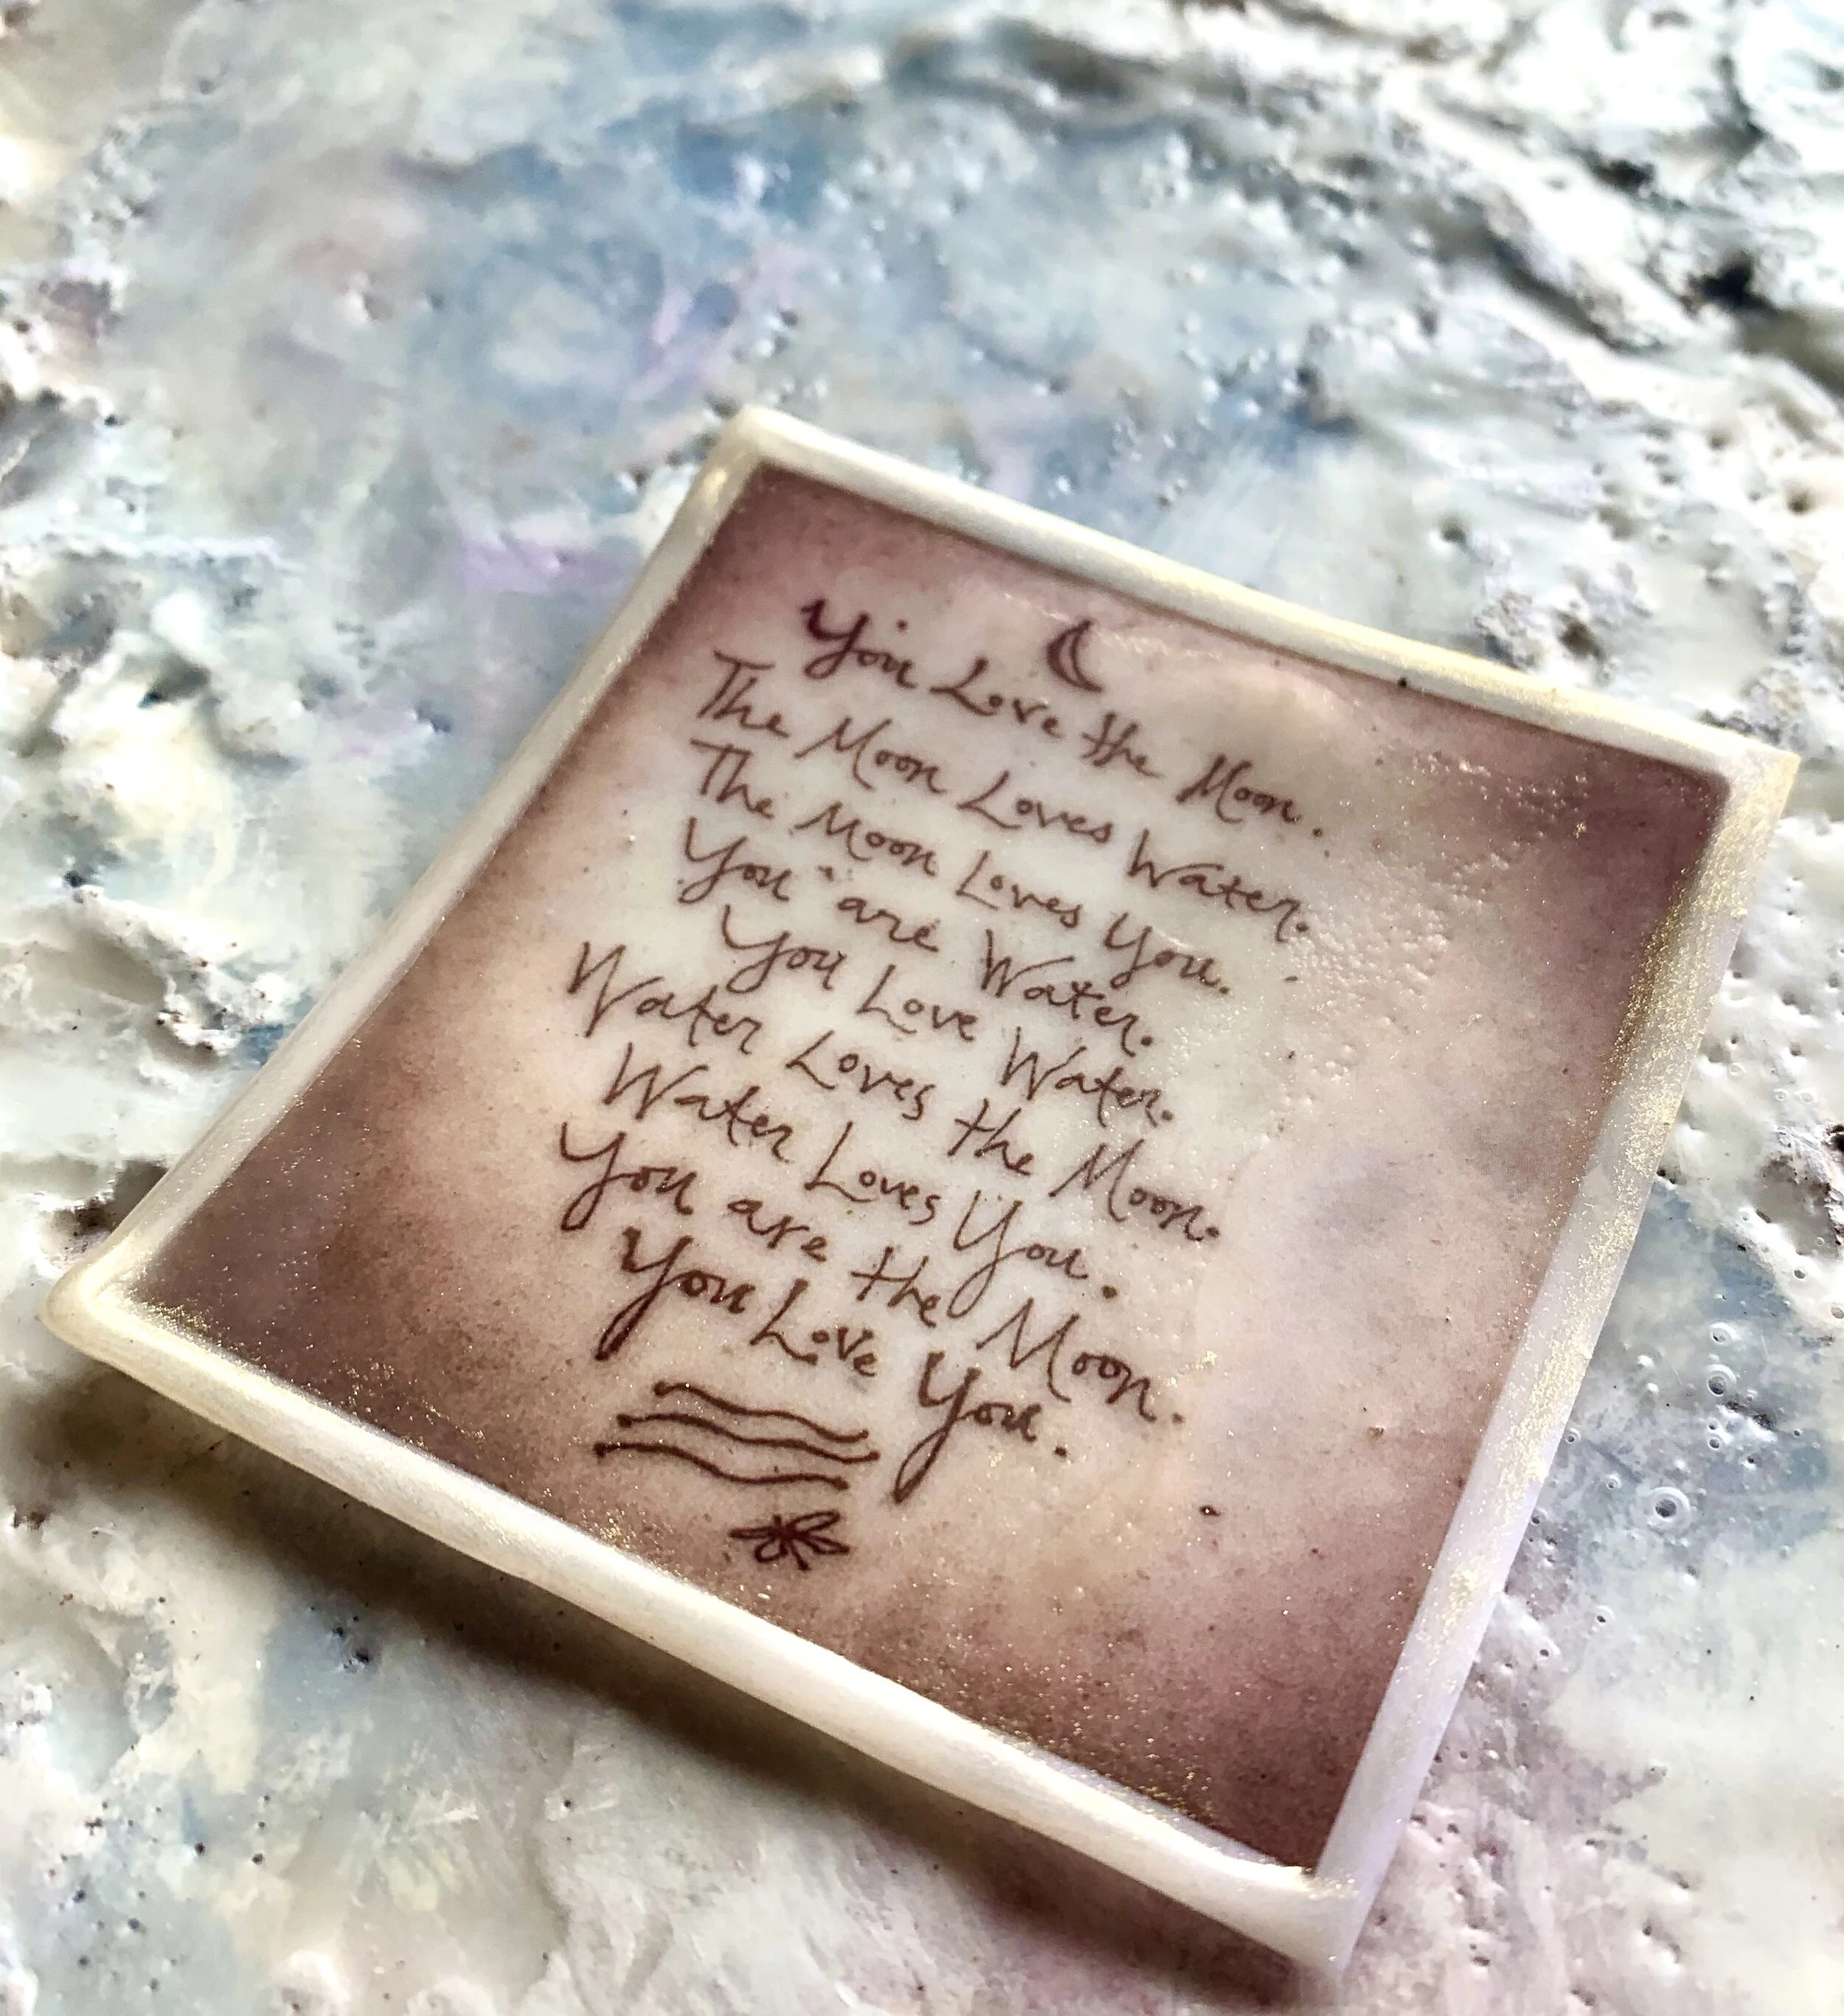 You Love the Moon.
The Moon Loves Water.
The Moon Loves You.
You are Water.
You Love Water.
Water Loves the Moon.
Water Loves You.
You are the Moon.
You Love You.